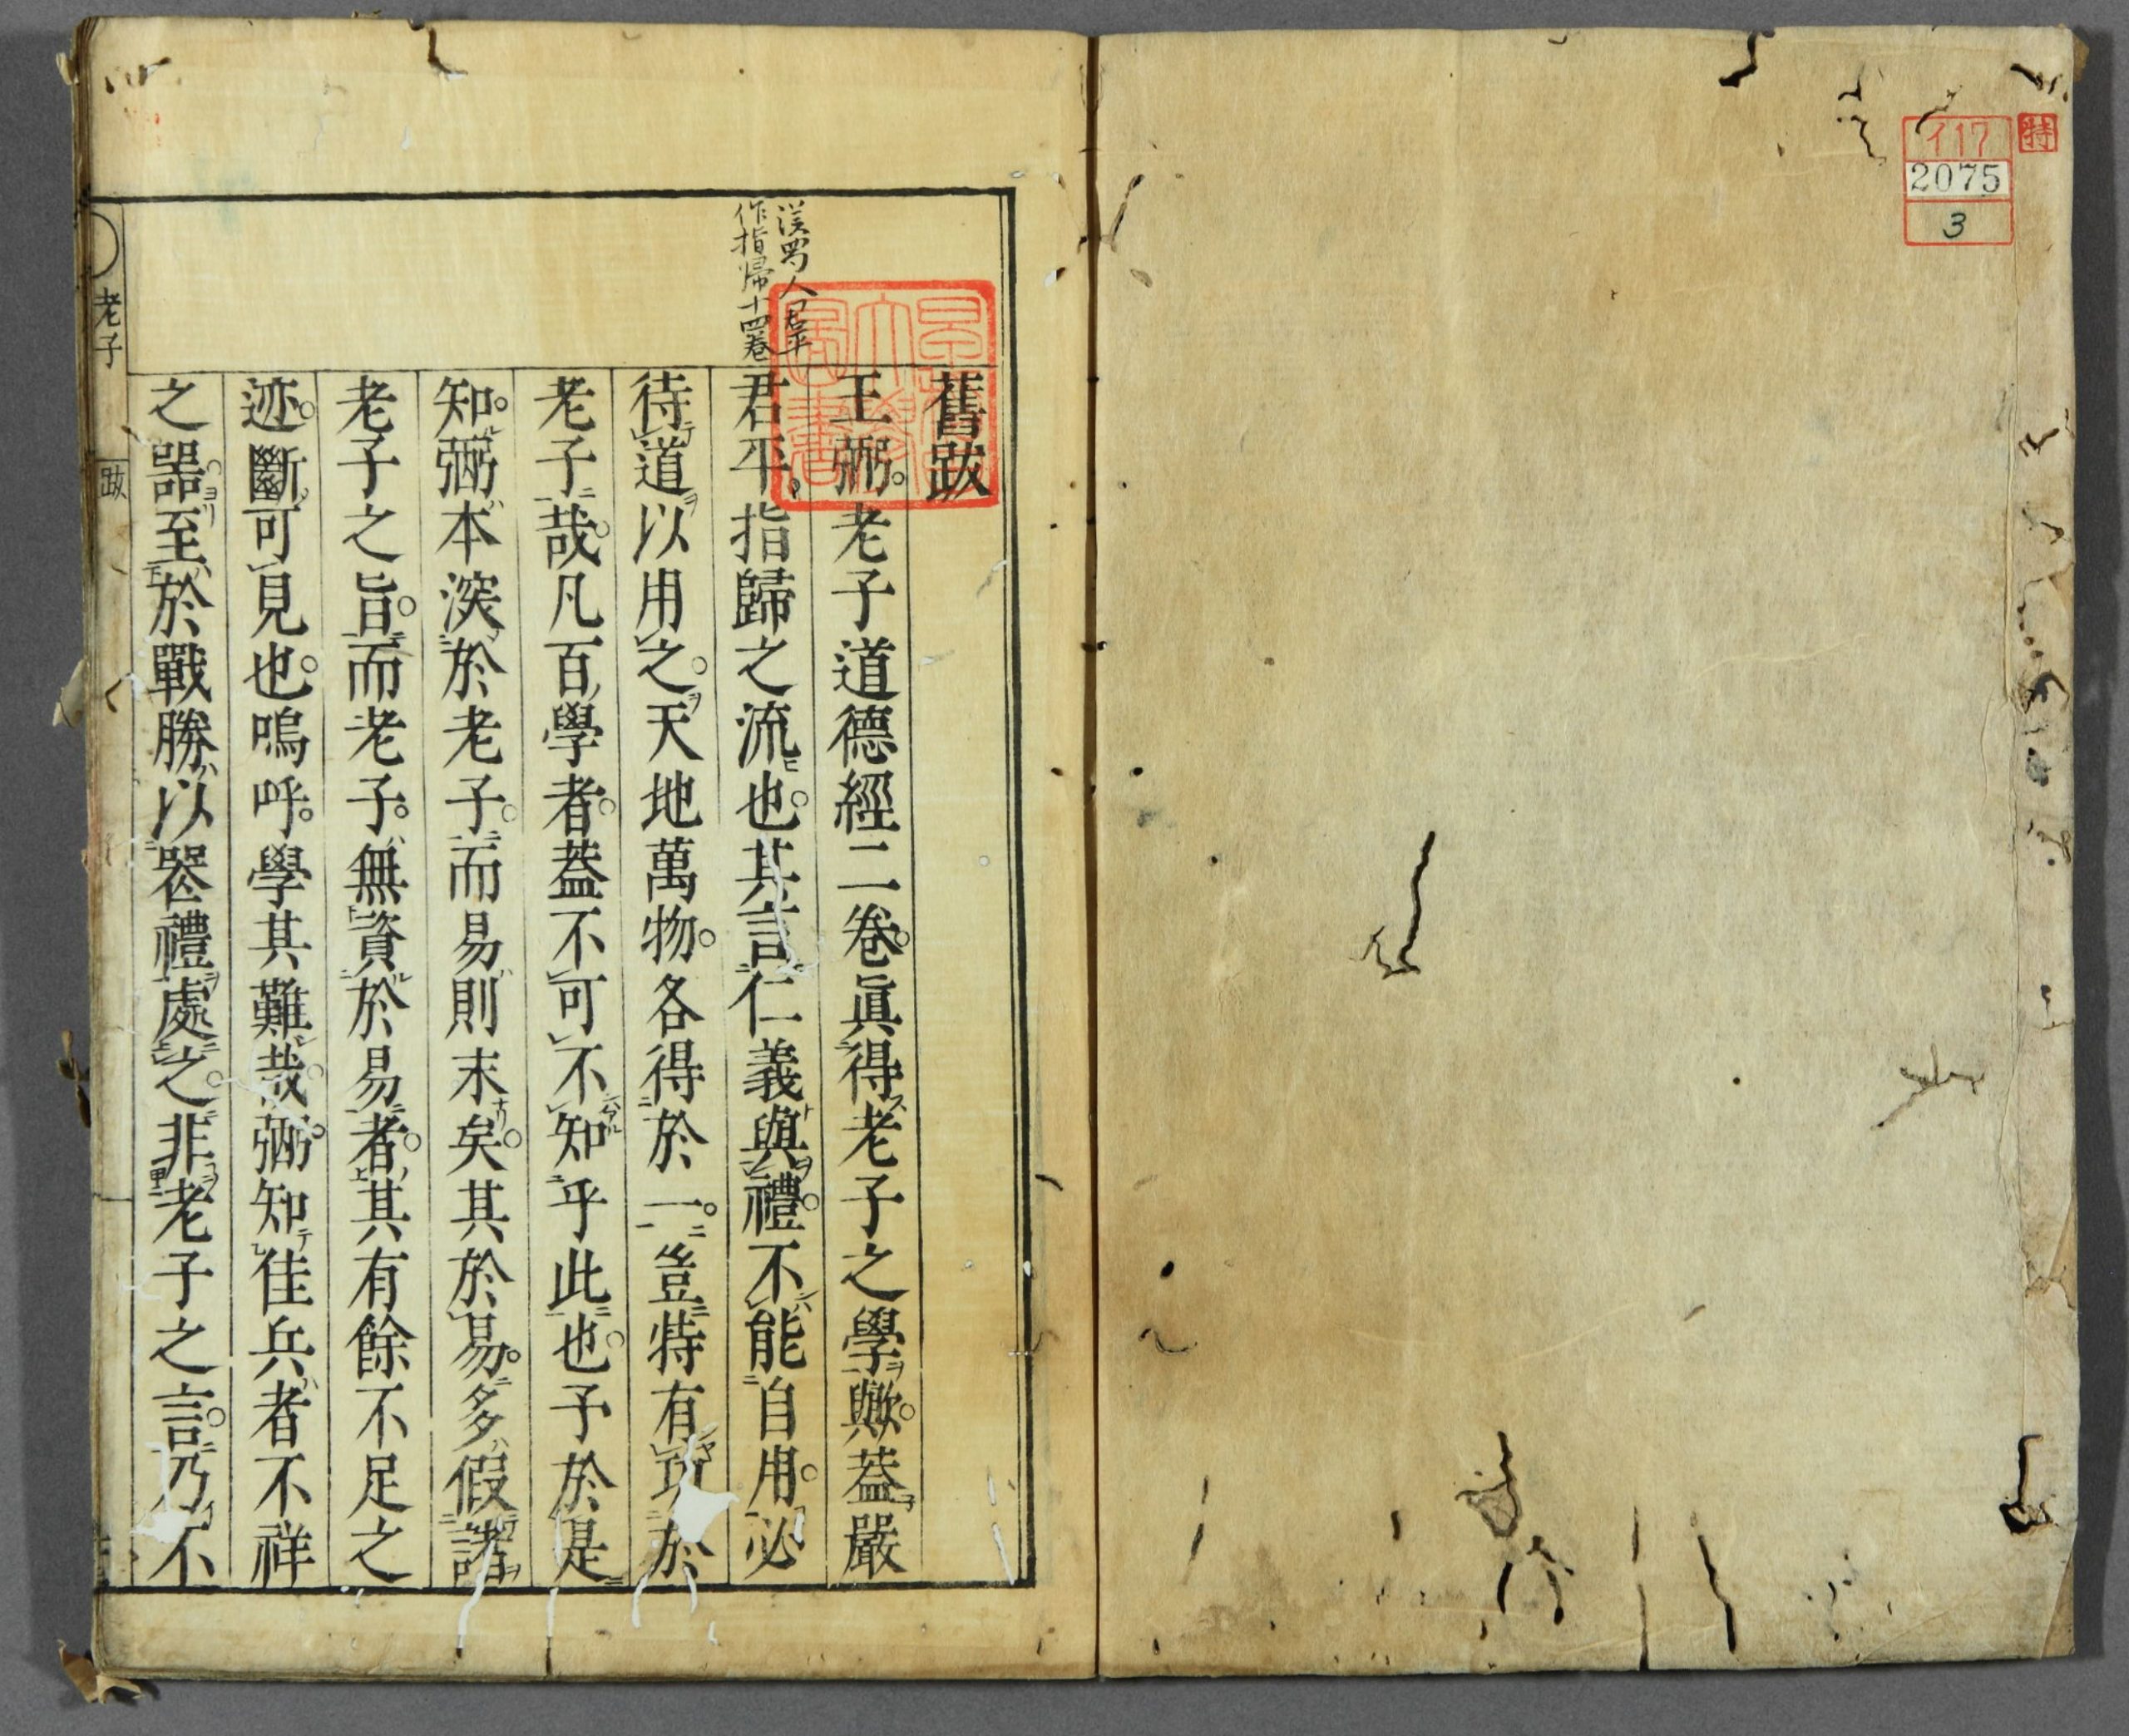 特
イ17
2075
3
舊跋
王弼老子道德經二卷眞得老子之學歟葢嚴
君平指歸之流也其言仁義與禮不能自用必
待道以用之天地萬物各得於一豈特有功於
老子哉凡百學者葢不可不知乎此也予於是
知弼本深於老子而易則末矣其於易多假諸
老子之旨而老子無資於易者其有餘不足之
迹斷可見也嗚呼學其難哉弼知佳兵者不祥
之器至於戰勝以喪禮處之非老子之言乃不
漢蜀人君平
作指帰十四卷
老子
跋